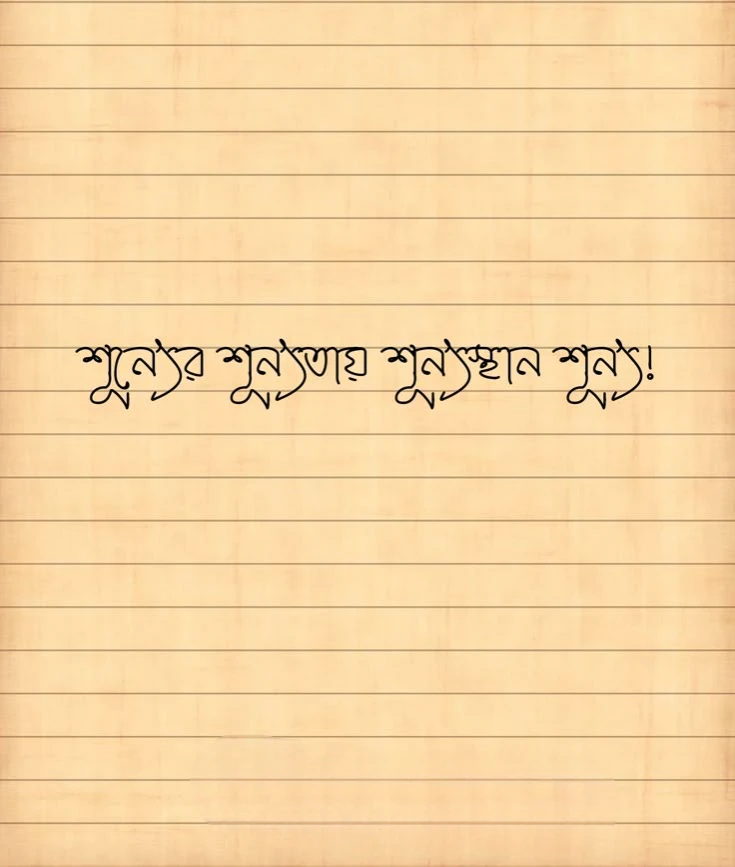 শূন্যের শূন্যতায় শূন্যস্থান শূন্য!